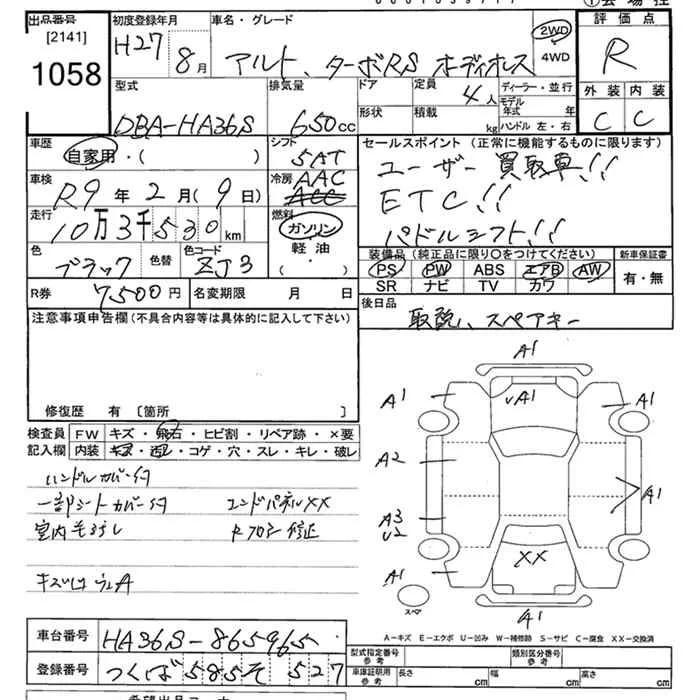 出品番号 初度登録年月 車名・グレード 評価点
[2141]
1058
H27 8月 アルト、ターボRS オーディオレス 2WD 4WD R
型式 排気量 ドア 定員 4人 ディーラー・並行 外装 内装
DBA-HA36S 650cc 形状 積載 kg モデル年式 年 ハンドル 左・右 C C
車歴 シフト セールスポイント(正常に機能するものに限ります)
自家用・( ) 5AT ユーザー買取車!!
車検 R9年2月(9日) 冷房 AAC ETC!!
走行 10万3千530km 燃料 ガソリン 軽油 ( ・ ) パドルシフト!!
色 ブラック 色替 色コード ZJ3
装備品(純正品に限り○をつけてください) 新車保証書
PS PW ABS エアB AW 有・無
SR ナビ TV カワ
R券 7500円 名変期限 月 日
後日品 取説、スペアキー
注意事項申告欄(不具合内容等は具体的に記入して下さい)
修復歴 有 〔箇所 〕
検査員記入欄 FW キズ・飛石・ヒビ割・リペア跡・×要
内装 キズ・汚レ・コゲ・穴・スレ・キレ・破レ
ハンドルカバー付
一部シートカバー付 エンドパネルXX
A1
A1 A1 A1
A2 A1
A3
U2
XX
A1
A1
スペア
A-キズ E-エクボ U-凹み W-補修跡 S-サビ C-腐食 XX-交換済
車台番号 HA36S-865965
登録番号 つくば 585 そ 527
型式指定番号 参考 類別区分番号 参考
車庫証明用 参考 長さ cm 幅 cm 高さ cm